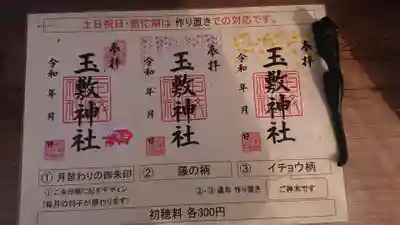 土日祝日・繁忙期は 作り置き での対応です。
奉拝
玉敷神社
令和 年 月 日
奉拝
玉敷神社
令和 年 月 日
奉拝
玉敷神社
令和 年 月 日
① 月替わりの御朱印
② 藤の柄
③ イチョウ柄
① ご朱印帳に記すデザイン
(毎月の判子が替わります)
②・③ 通年 作り置き
ご神木です
初穂料 各300円